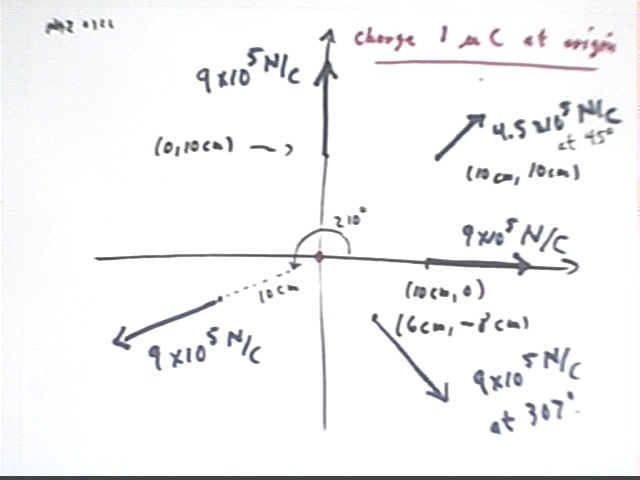 charge 1 μC at origin
9x10^5 N/C
(0,10cm) →
4.5x10^5 N/C
at 45°
(10cm, 10cm)
210°
9x10^5 N/C
10cm
(10cm, 0)
(6cm, -8cm)
9x10^5 N/C
9x10^5 N/C
at 307°.